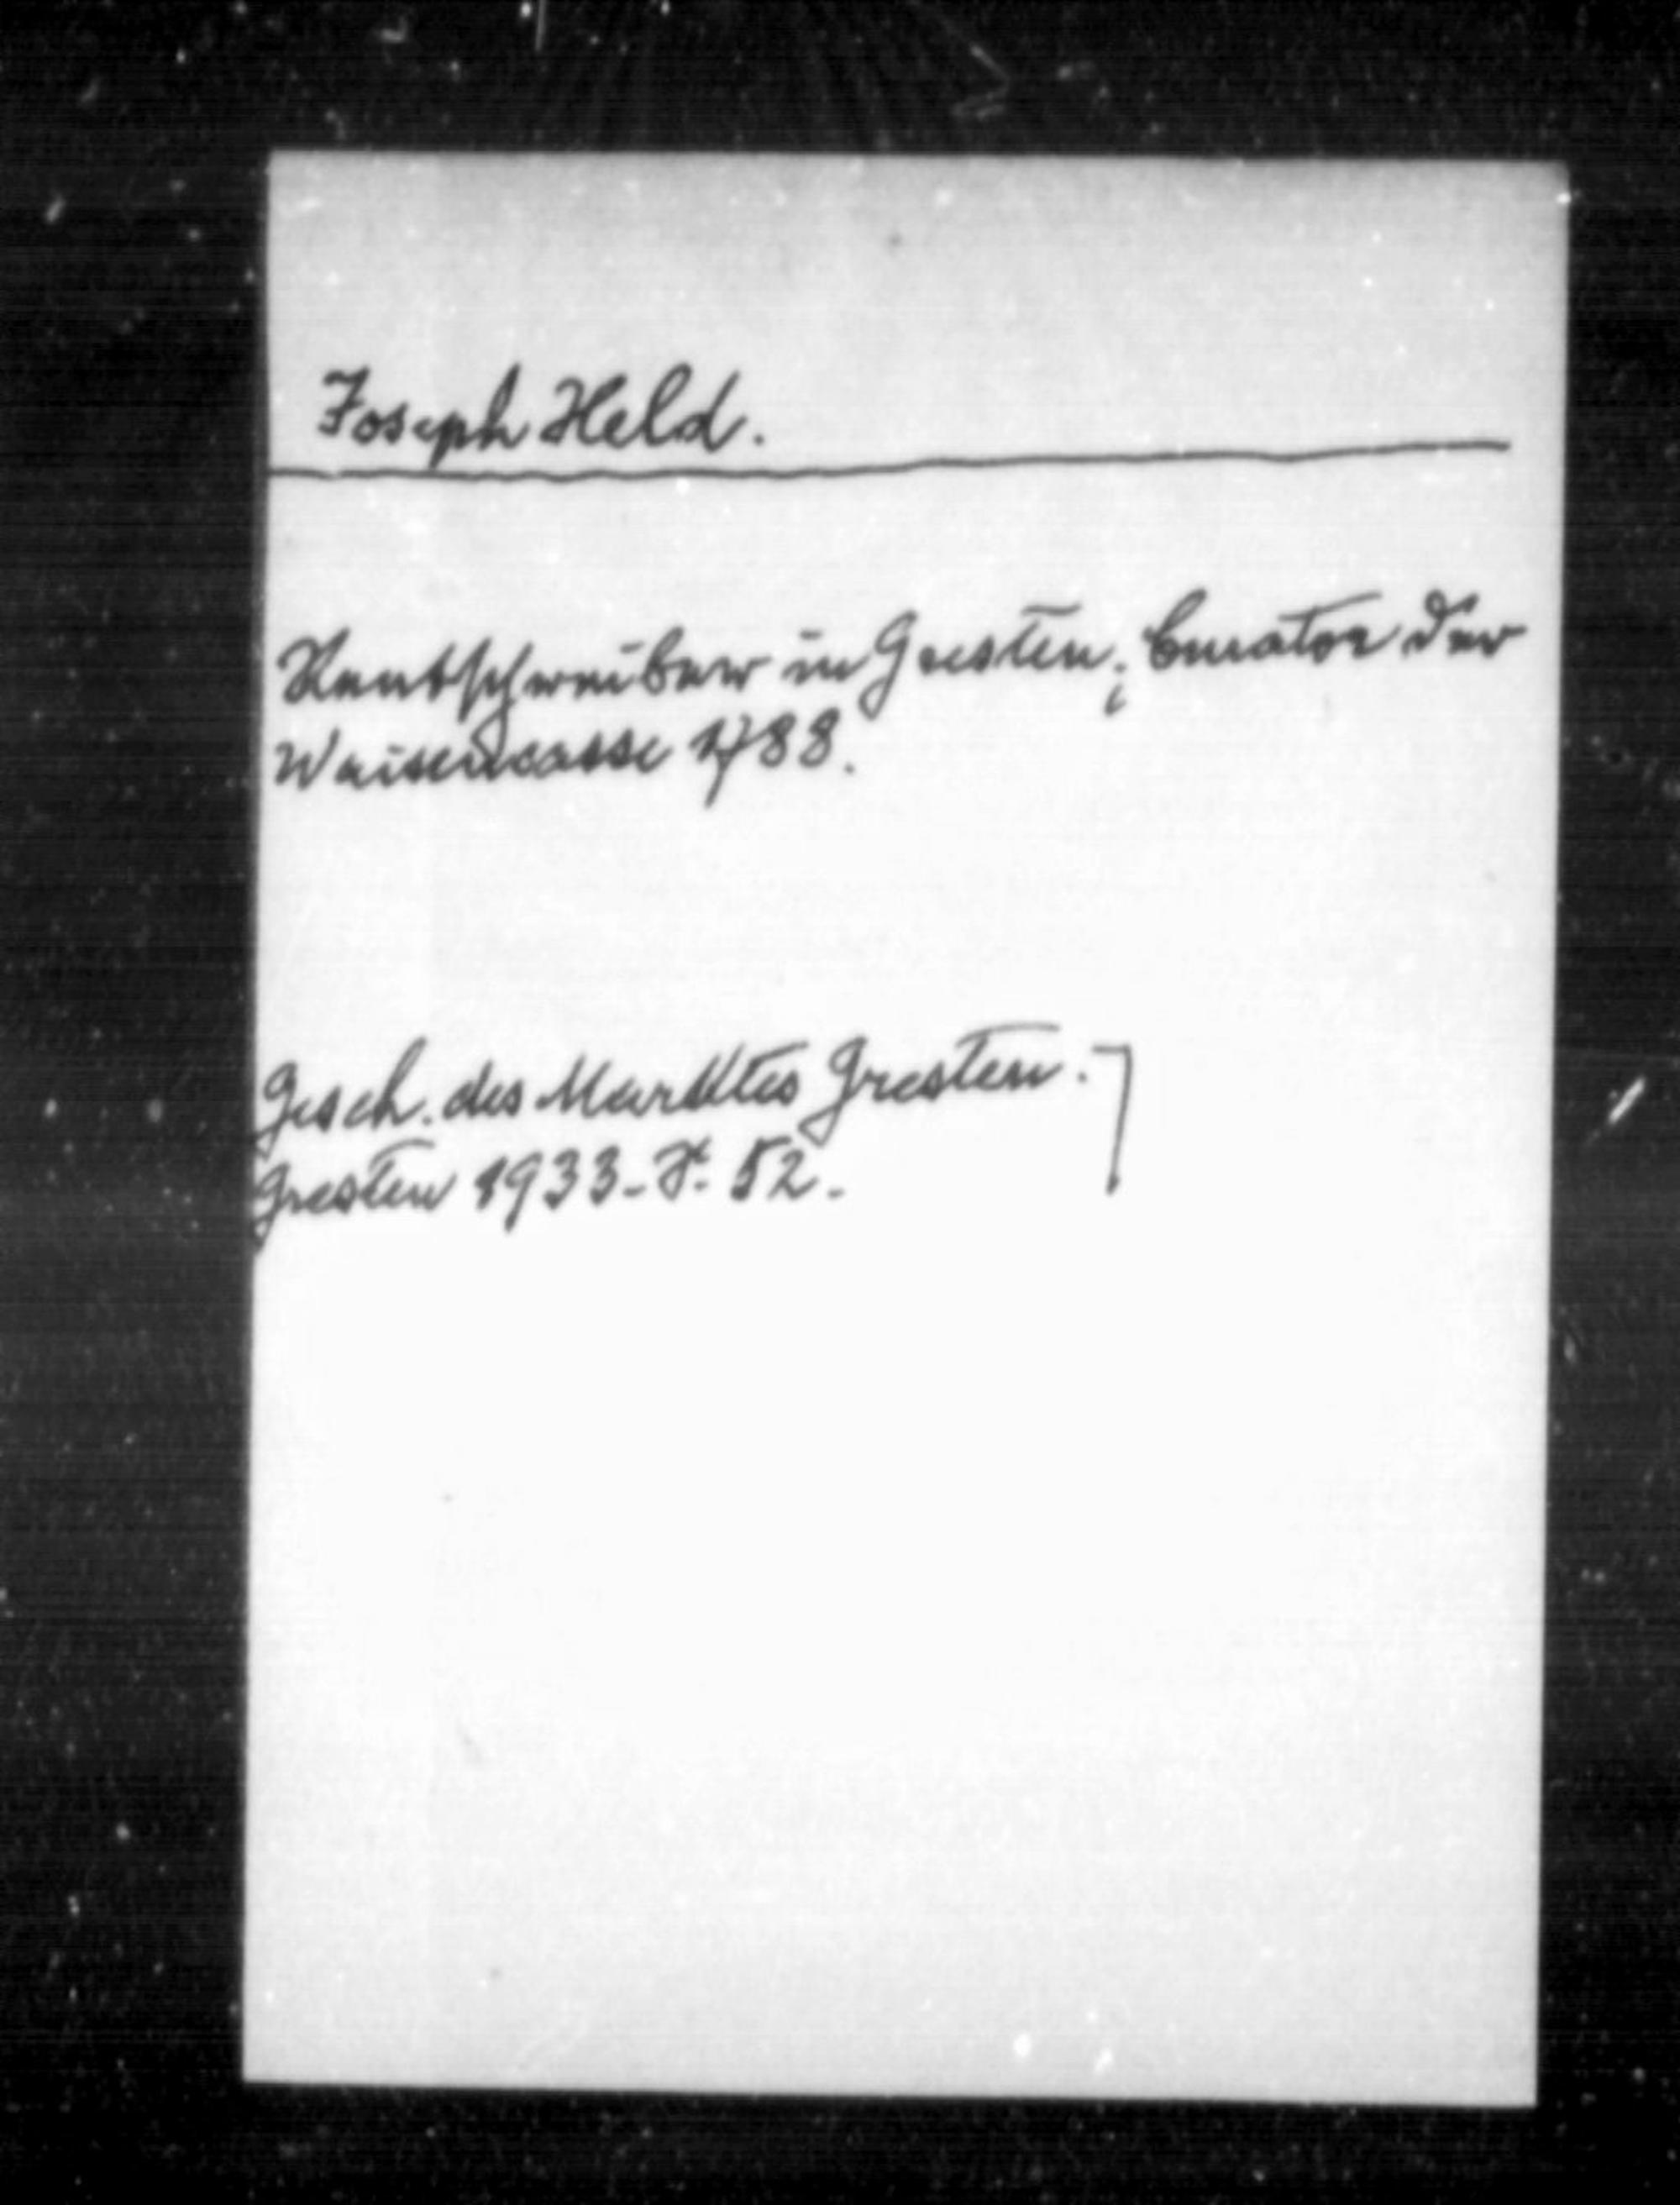 Joseph Held.
Rentschreiber in Gresten; Curator der
Waisencasse 1788.
Gesch. des Marktes Gresten.
Gresten 1933 - S. 52.